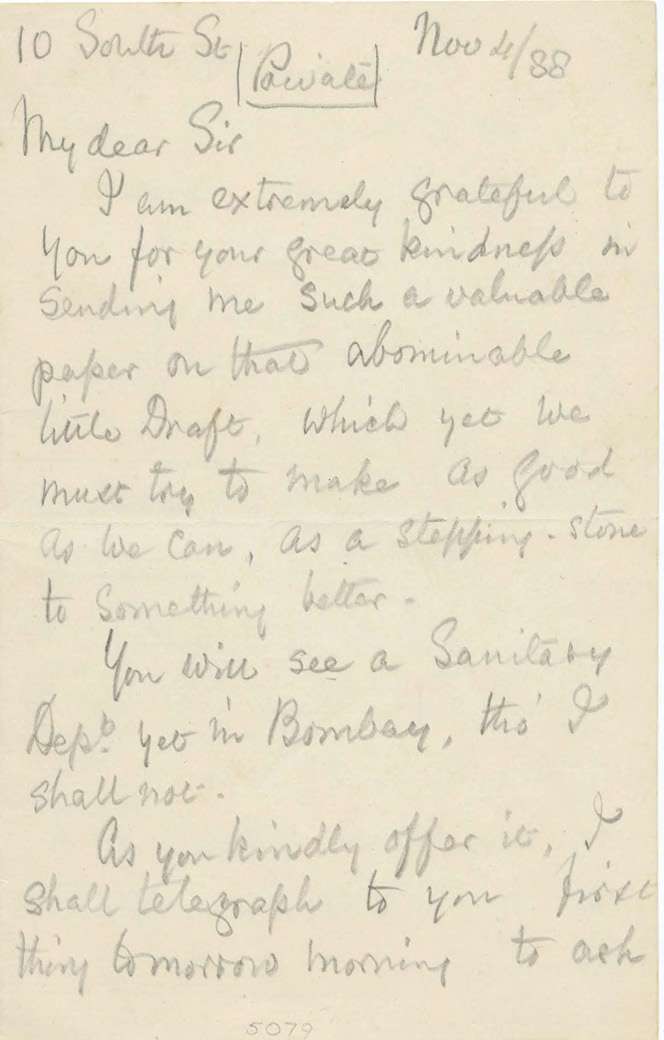 10 South St Nov 4/88
(Private)
My dear Sir
I am extremely grateful to
you for your great kindness in
sending me such a valuable
paper on that abominable
little Draft, which yet we
must try to make as good
as we can, as a stepping-stone
to something better.
You will see a Sanitary
Dept. yet in Bombay, tho' I
shall not.
As you kindly offer it, I
shall telegraph to you first
thing tomorrow morning to ask
5079